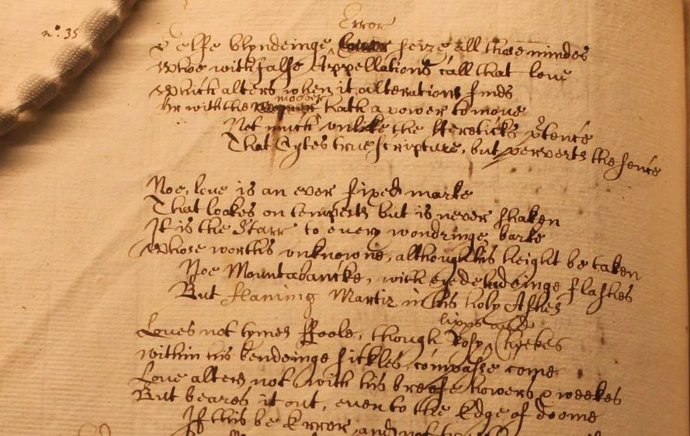 n°. 35
Error
Selfe blyndeinge seize all those mindes
Whoe with false Appellations call that love
Which alters when it alterations finds
mover
Or with the hath a power to move
Not much unlike the Hereticks p'tence
That Cytes true scripture, but perverts the sence
Noe, love is an ever fixed marke
That lookes on tempests but is never shaken
It is the Starr to every wondringe barke
Whose worths unknowne, although his height be taken
Noe Mountabancke, with eyedeludeinge flashes
But flaming Martir in his holy Ashes
lipps and
Loves not tymes ffoole, though Rosy Cheekes
within his bendeinge sickles, compasse come
Love alters not with his breefe howers & weekes
But beares it out, even to the Edge of doome
If this be Error, and not